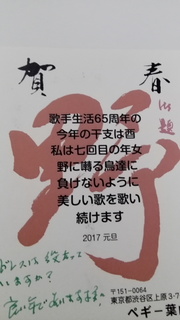 賀春
野
歌手生活65周年の
今年の干支は酉
私は七回目の年女
野に囀る鳥達に
負けないように
美しい歌を歌い
続けます
2017 元旦
〒151-0064
東京都渋谷区上原3-
ペギー葉